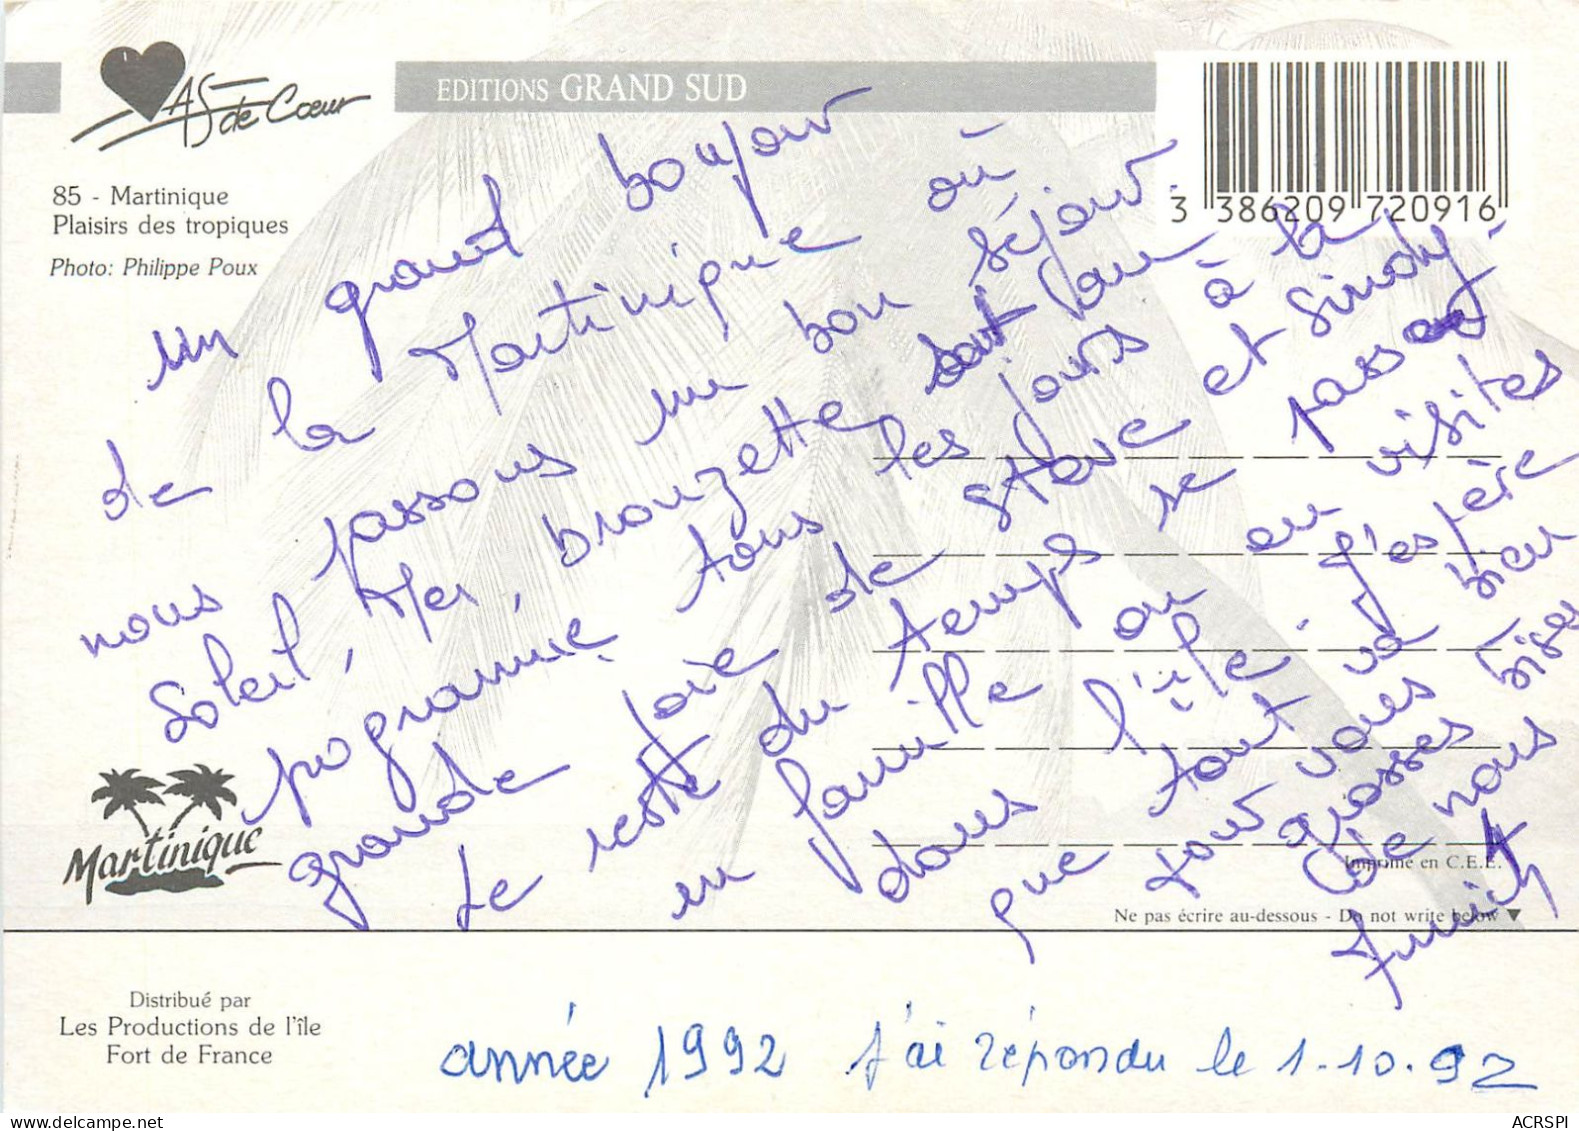 AS de Cœur
EDITIONS GRAND SUD
85 - Martinique
Plaisirs des tropiques
Photo: Philippe Poux
3 386209 720916
Un grand bonjour
de la Martinique où
nous passons un bon séjour.
Soleil, Mer, bronzette sont au
programme tous les jours à la
grande joie de Steve et Sindy.
Le reste du temps se passe
en famille ou en visites
dans l'île. J'espère
que tout va bien
pour vous
grosses bises
de nous
Martinique
Imprimé en C.E.E.
Ne pas écrire au-dessous - Do not write below ▼
Distribué par
Les Productions de l'île
Fort de France
année 1992 J'ai répondu le 1.10.92
ACRSPI